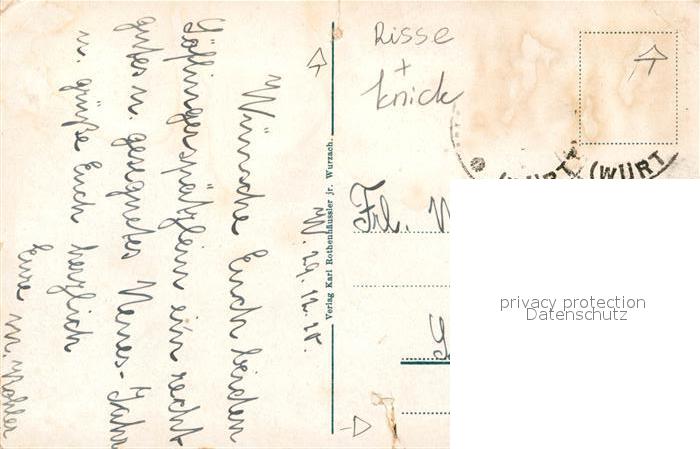 Risse
+
knick
(WÜRT
(WÜRT
Frl.
privacy protection
Datenschutz
Verlag Karl Rothenhäussler jr. Wurzach.
Wünsche Euch beiden
ein recht
gutes u. gesegnetes Neues-Jahr
u. grüße Euch herzlich
Eure